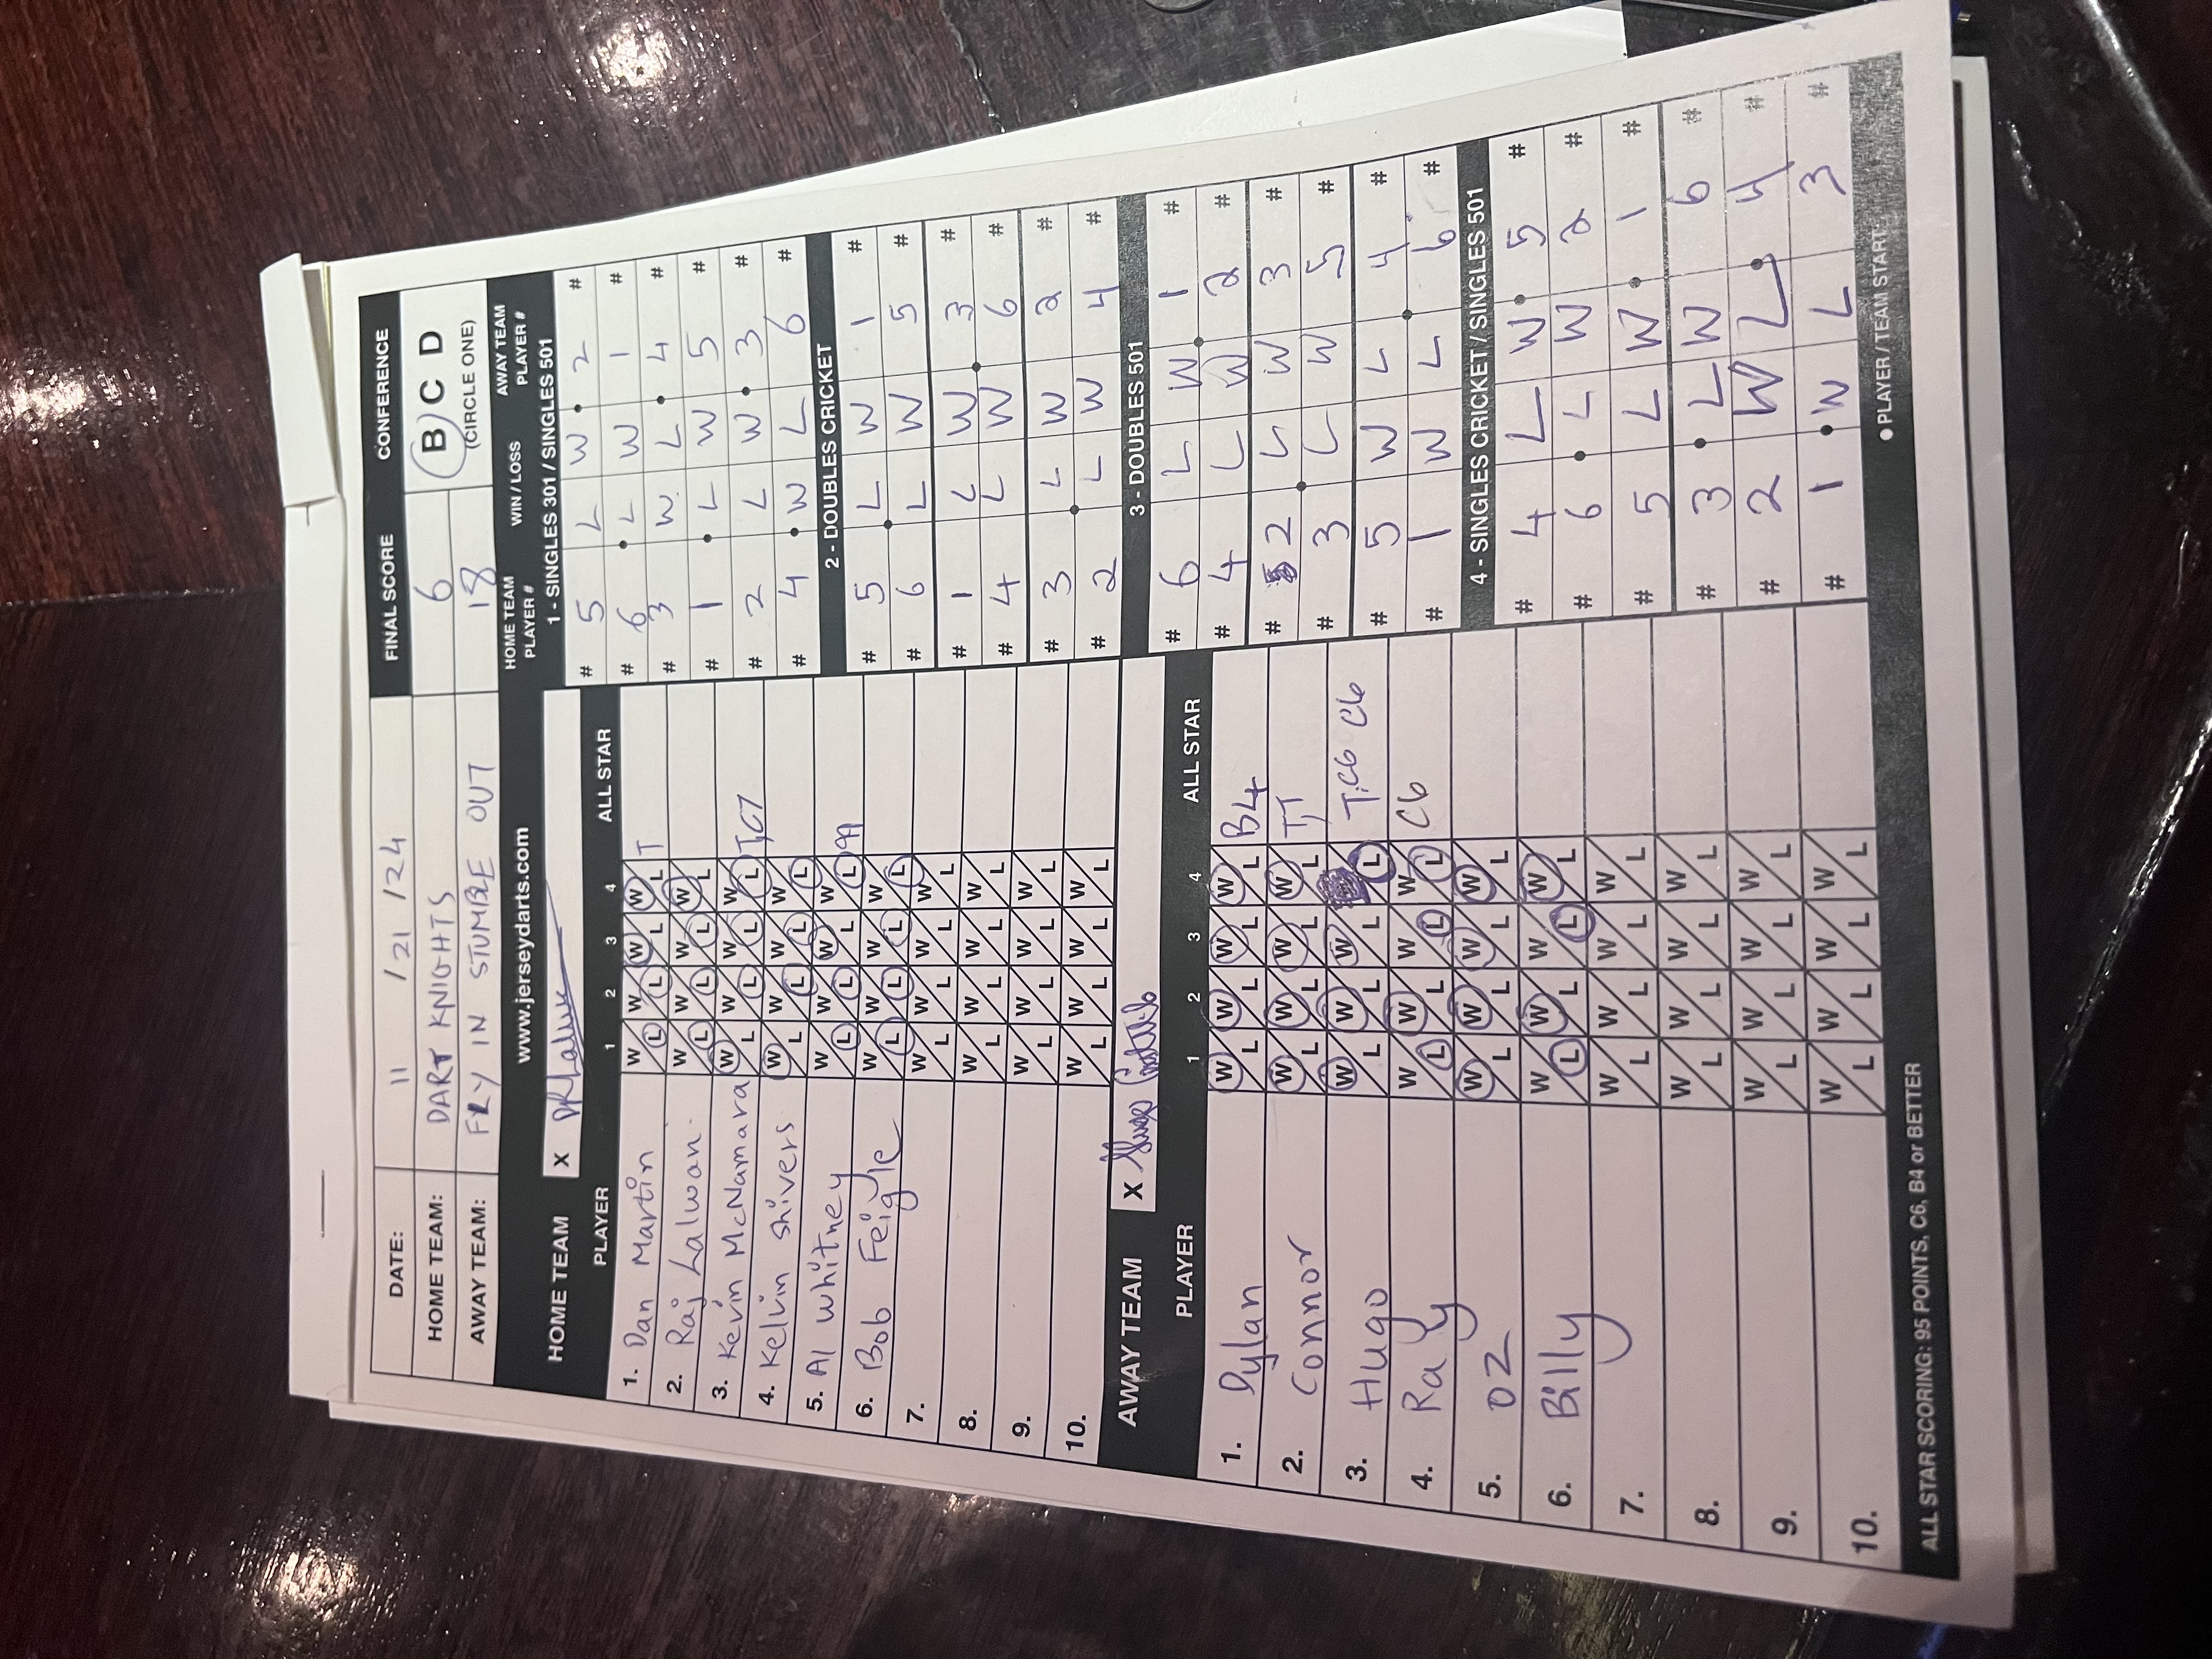 DATE: 11 / 21 / 24 FINAL SCORE CONFERENCE
HOME TEAM: DART KNIGHTS 6 B C D
AWAY TEAM: FLY IN STUMBLE OUT 18 (CIRCLE ONE)
www.jerseydarts.com
HOME TEAM X
PLAYER 1 2 3 4 ALL STAR
1. Dan Martin W L W L W L W L T
2. Raj Lalwani W L W L W L W L
3. Kevin McNamara W L W L W L W L T,C7
4. Kelvin Shivers W L W L W L W L
5. Al Whitney W L W L W L W L 99
6. Bob Feigle W L W L W L W L
7. W L W L W L W L
8. W L W L W L W L
9. W L W L W L W L
10. W L W L W L W L
AWAY TEAM X
PLAYER 1 2 3 4 ALL STAR
1. Dylan W L W L W L W L B4
2. Connor W L W L W L W L T,T
3. Hugo W L W L W L L T.C6 C6
4. Ray W L W L W L W L C6
5. OZ W L W L W L W L
6. Billy W L W L W L W L
7. W L W L W L W L
8. W L W L W L W L
9. W L W L W L W L
10. W L W L W L W L
HOME TEAM PLAYER # WIN / LOSS AWAY TEAM PLAYER #
1 - SINGLES 301 / SINGLES 501
# 5 L W 2 #
# 6 L W 1 #
# 3 W L 4 #
# 1 L W 5 #
# 2 L W 3 #
# 4 W L 6 #
2 - DOUBLES CRICKET
# 5 L W 1 #
# 6 L W 5 #
# 1 L W 3 #
# 4 L W 6 #
# 3 L W 2 #
# 2 L W 4 #
3 - DOUBLES 501
# 6 L W 1 #
# 4 L W 2 #
# 2 L W 3 #
# 3 L W 5 #
# 5 W L 4 #
# 1 W L 6 #
4 - SINGLES CRICKET / SINGLES 501
# 4 L W 5 #
# 6 L W 2 #
# 5 L W 1 #
# 3 L W 6 #
# 2 W L 4 #
# 1 W L 3 #
ALL STAR SCORING: 95 POINTS, C6, B4 or BETTER ● PLAYER / TEAM START